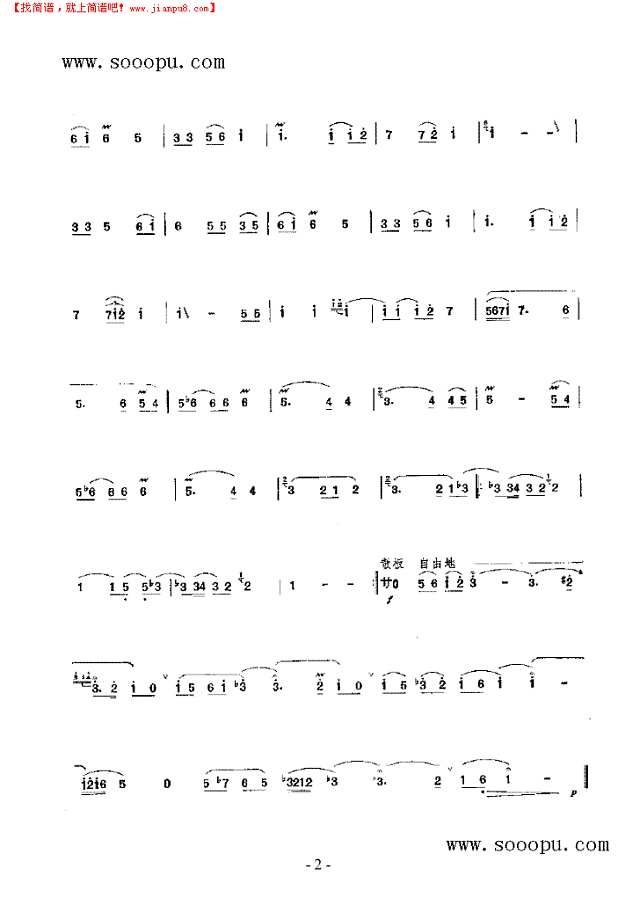 【找简谱，就上简谱吧! www.jianpu8.com】
www.sooopu.com
6 i 6 5 | 3 3 5 6 i | i. i i 2 | 7 7 2 i | i - - \ |
3 3 5 6 i | 6 5 5 3 5 | 6 i 6 5 | 3 3 5 6 i | i. i i 2 |
7 7i2 i | i\ - 5 5 | i i i | i i i 2 7 | 567i 7. 6 |
5. 6 5 4 | 5 ♭6 6 6 6 | 5. 4 4 | 3. 4 4 5 | 5 - 5 4 |
5 ♭6 6 6 6 | 5. 4 4 | 3 2 1 2 | 3. 2 1 ♭3 | ♭3 34 3 2 2 |
1 1 5 5 ♭3 | ♭3 34 3 2 2 | 1 - -
散板 自由地
サ0 5 6 i 2 3 - 3. #2
f
3. 2 i 0 i 5 6 i ♭3 3. 2 i 0 i 5 ♭3 2 i 6 i i -
i2i6 5 0 5 ♭7 6 5 ♭3212 ♭3 3. 2 1 6 1 -
p
www.sooopu.com
- 2 -